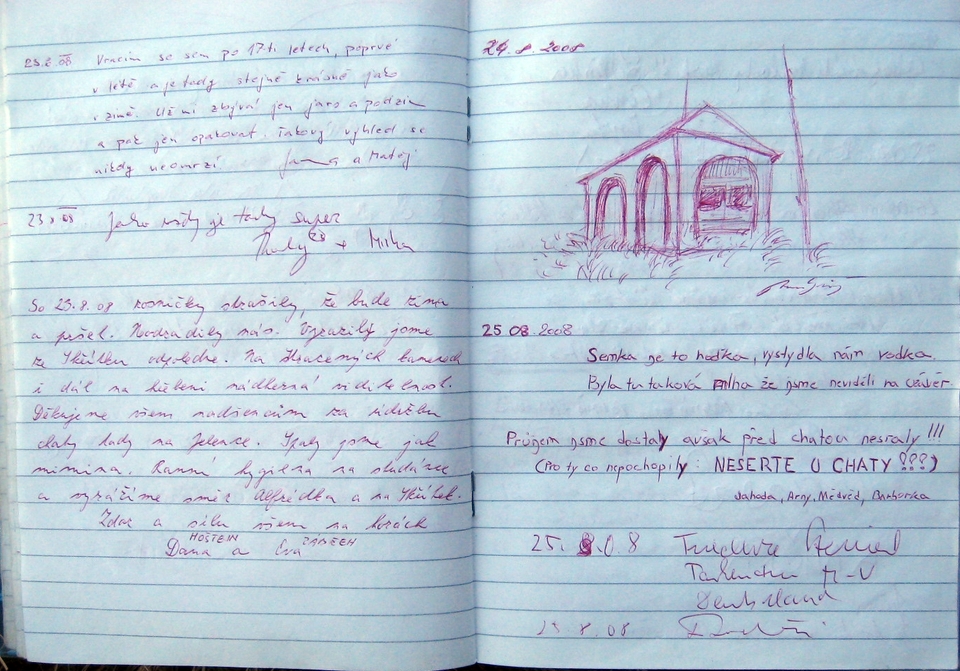 23.8.08 Vracím se sem po 17-ti letech, poprvé
v létě a je tady stejně krásně jako
v zimě. Už mi zbývá jen jaro a podzim
a pak jen opakovat. Takový výhled se
nikdy neomrzí. Jana a Matěj
23.8.08 Jako vždy je tady super
+ Mirka
So 23.8.08 rosničky strašily, že bude zima
a pršet. Neodradily nás. Vyrazily jsme
ze Skřítku odpoledne. Na Ztracených kamenech
i dál na hřebeni nádherná viditelnost.
Děkujeme všem nadšencům za údržbu
chaty tady na Jelence. Spaly jsme jak
mimina. Ranní hygiena na studánce
a vyrážíme směr Alfrédka a na Skřítek.
Zdar a sílu všem na horách
HOŠTEJN ZÁBŘEH
Dana a Eva
24.8.2008
25 08.2008
Semka je to hodka, vystydla nám vodka.
Byla tu taková mlha že jsme neviděli na závěr
Průjem jsme dostaly avšak před chatou nesraly !!!
(Pro ty co nepochopily: NESERTE U CHATY ???)
Jahoda, Arny, Medvěd, Barborka
25.8.08
M-V
Deutschland
25.8.08